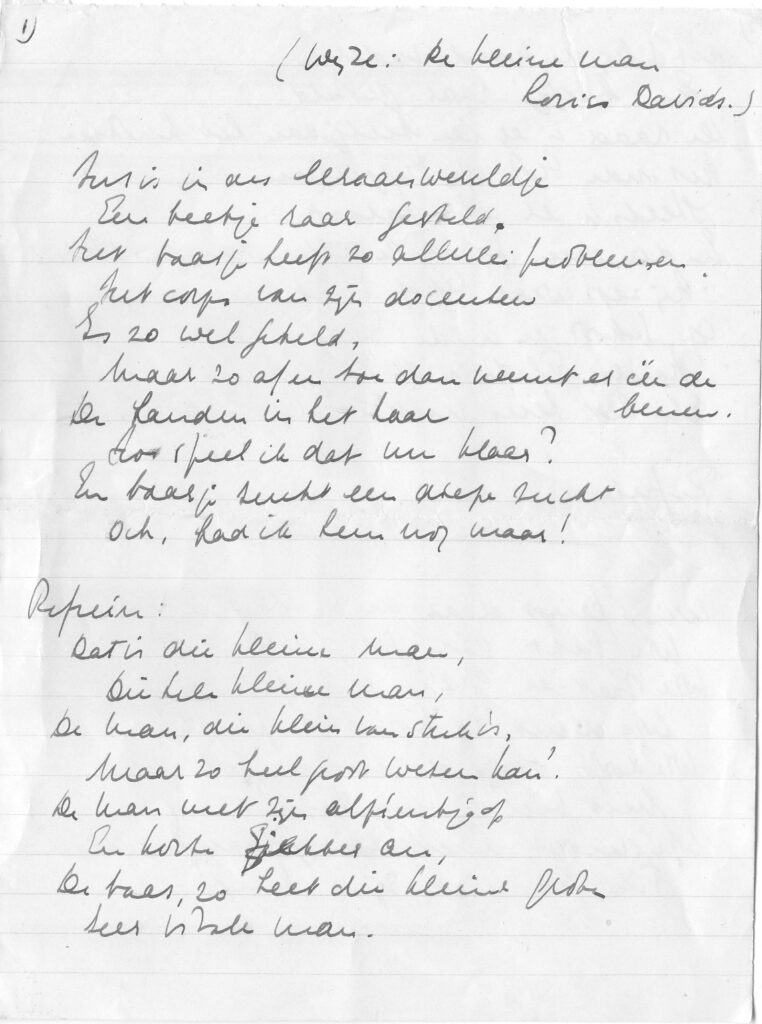 1)
(Wijze: De kleine man
Louis Davids.)
Het is in ons leraarswereldje
Een beetje raar gesteld.
Het baasje heeft zo allerlei problemen.
Het corps van zijn docenten
Is zo wel geteld,
Maar zo af en toe dan neemt er één de
benen.
De handen in het haar
Hoe speel ik dat nu klaar?
En baasje zucht een diepe zucht
Och, had ik hem nog maar!
Refrein:
Dat is die kleine man,
Die hele kleine man,
De man, die klein van stuk is,
Maar zo heel groot wezen kan!
De man met zijn alpientje op
En korte an,
De baas, zo heet die kleine grote
Zeer vitale man.